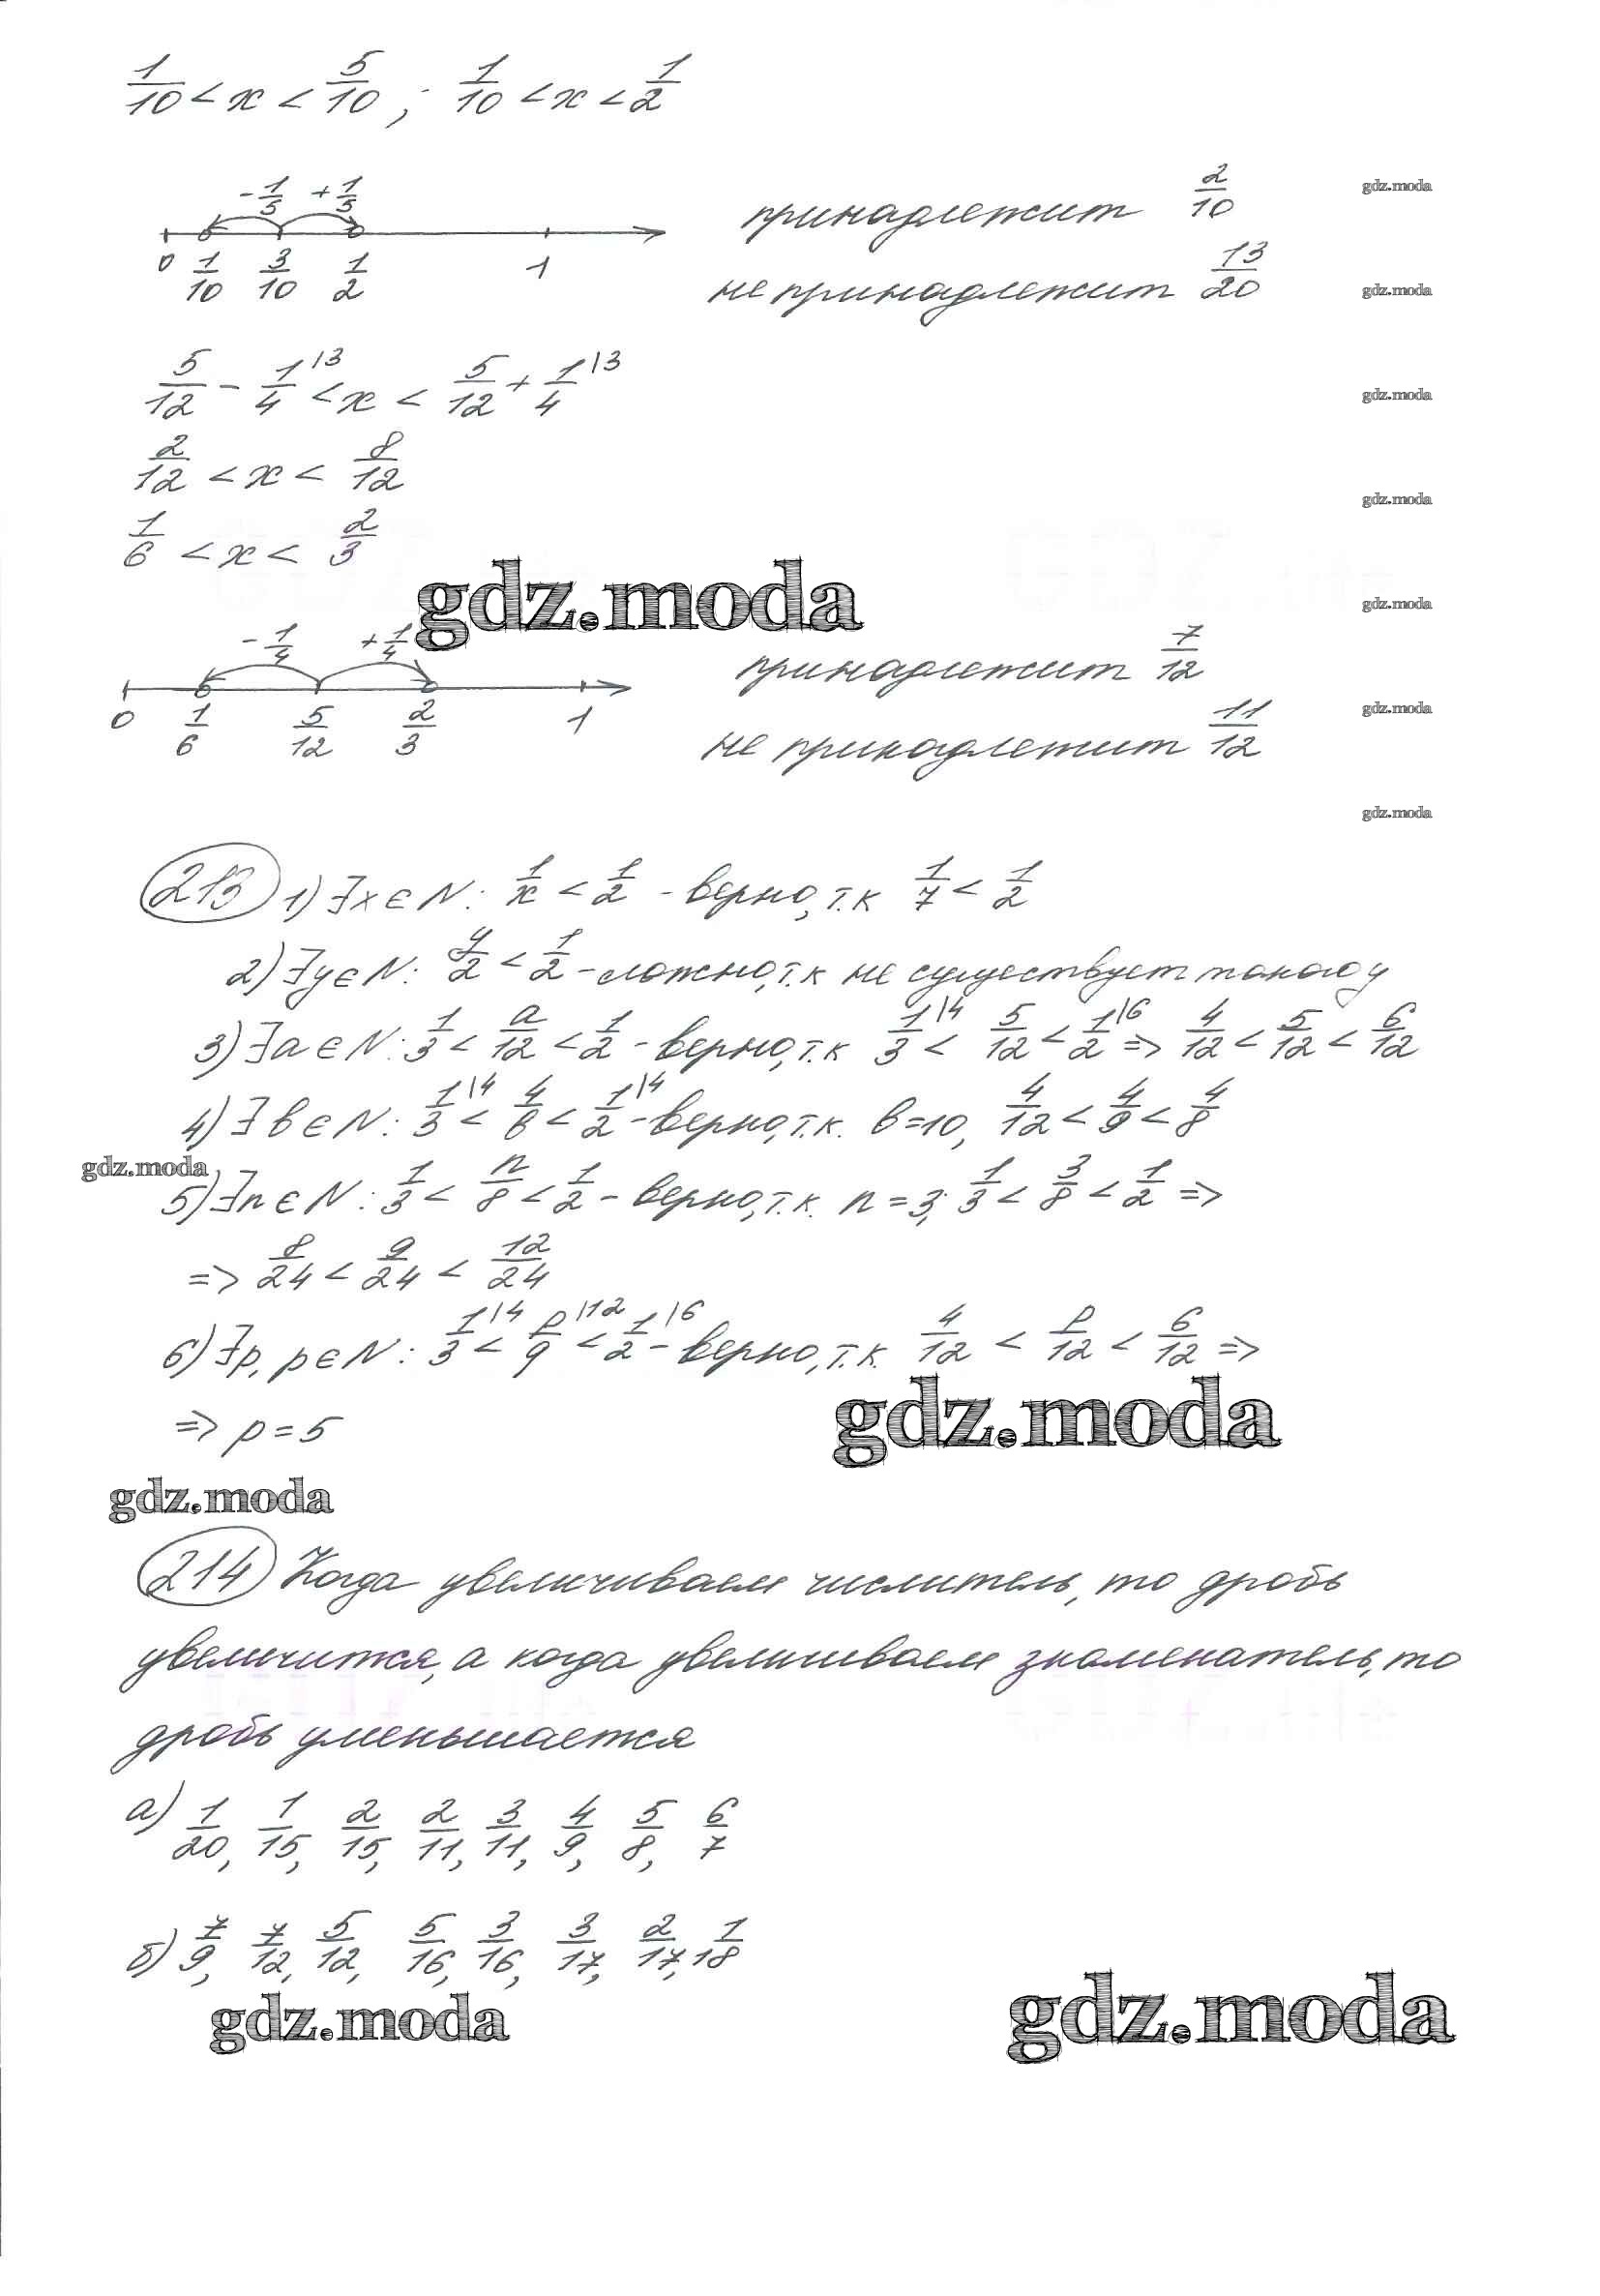 1/10 < x < 5/10 ; 1/10 < x < 1/2
-1/5 +1/5
0 1/10 3/10 1/2 1
принадлежит 2/10
gdz.moda
не принадлежит 13/20
gdz.moda
5/12 - 1/4 |3 < x < 5/12 + 1/4 |3
gdz.moda
2/12 < x < 8/12
gdz.moda
1/6 < x < 2/3
gdz.moda
gdz.moda
-1/4 +1/4
0 1/6 5/12 2/3 1
принадлежит 7/12
не принадлежит 11/12
gdz.moda
gdz.moda
213 1) ∃x∈N: 1/x < 1/2 - верно, т.к 1/7 < 1/2
2) ∃y∈N: y/2 < 1/2 - ложно, т.к не существует такого y
3) ∃a∈N: 1/3 < a/12 < 1/2 - верно, т.к 1/3 |4 < 5/12 < 1/2 |6 => 4/12 < 5/12 < 6/12
4) ∃b∈N: 1/3 |4 < 4/b < 1/2 |4 - верно, т.к. b=10, 4/12 < 4/9 < 4/8
gdz.moda
5) ∃n∈N: 1/3 < n/8 < 1/2 - верно, т.к. n=3; 1/3 < 3/8 < 1/2 =>
=> 8/24 < 9/24 < 12/24
6) ∃p, p∈N: 1/3 |4 < p/9 |12 < 1/2 |6 - верно, т.к. 4/12 < p/12 < 6/12 =>
=> p=5
gdz.moda
gdz.moda
214 Когда увеличиваем числитель, то дробь
увеличится, а когда увеличиваем знаменатель, то
дробь уменьшается
а) 1/20, 1/15, 2/15, 2/11, 3/11, 4/9, 5/8, 6/7
б) 7/9, 7/12, 5/12, 5/16, 3/16, 3/17, 2/17, 1/18
gdz.moda
gdz.moda